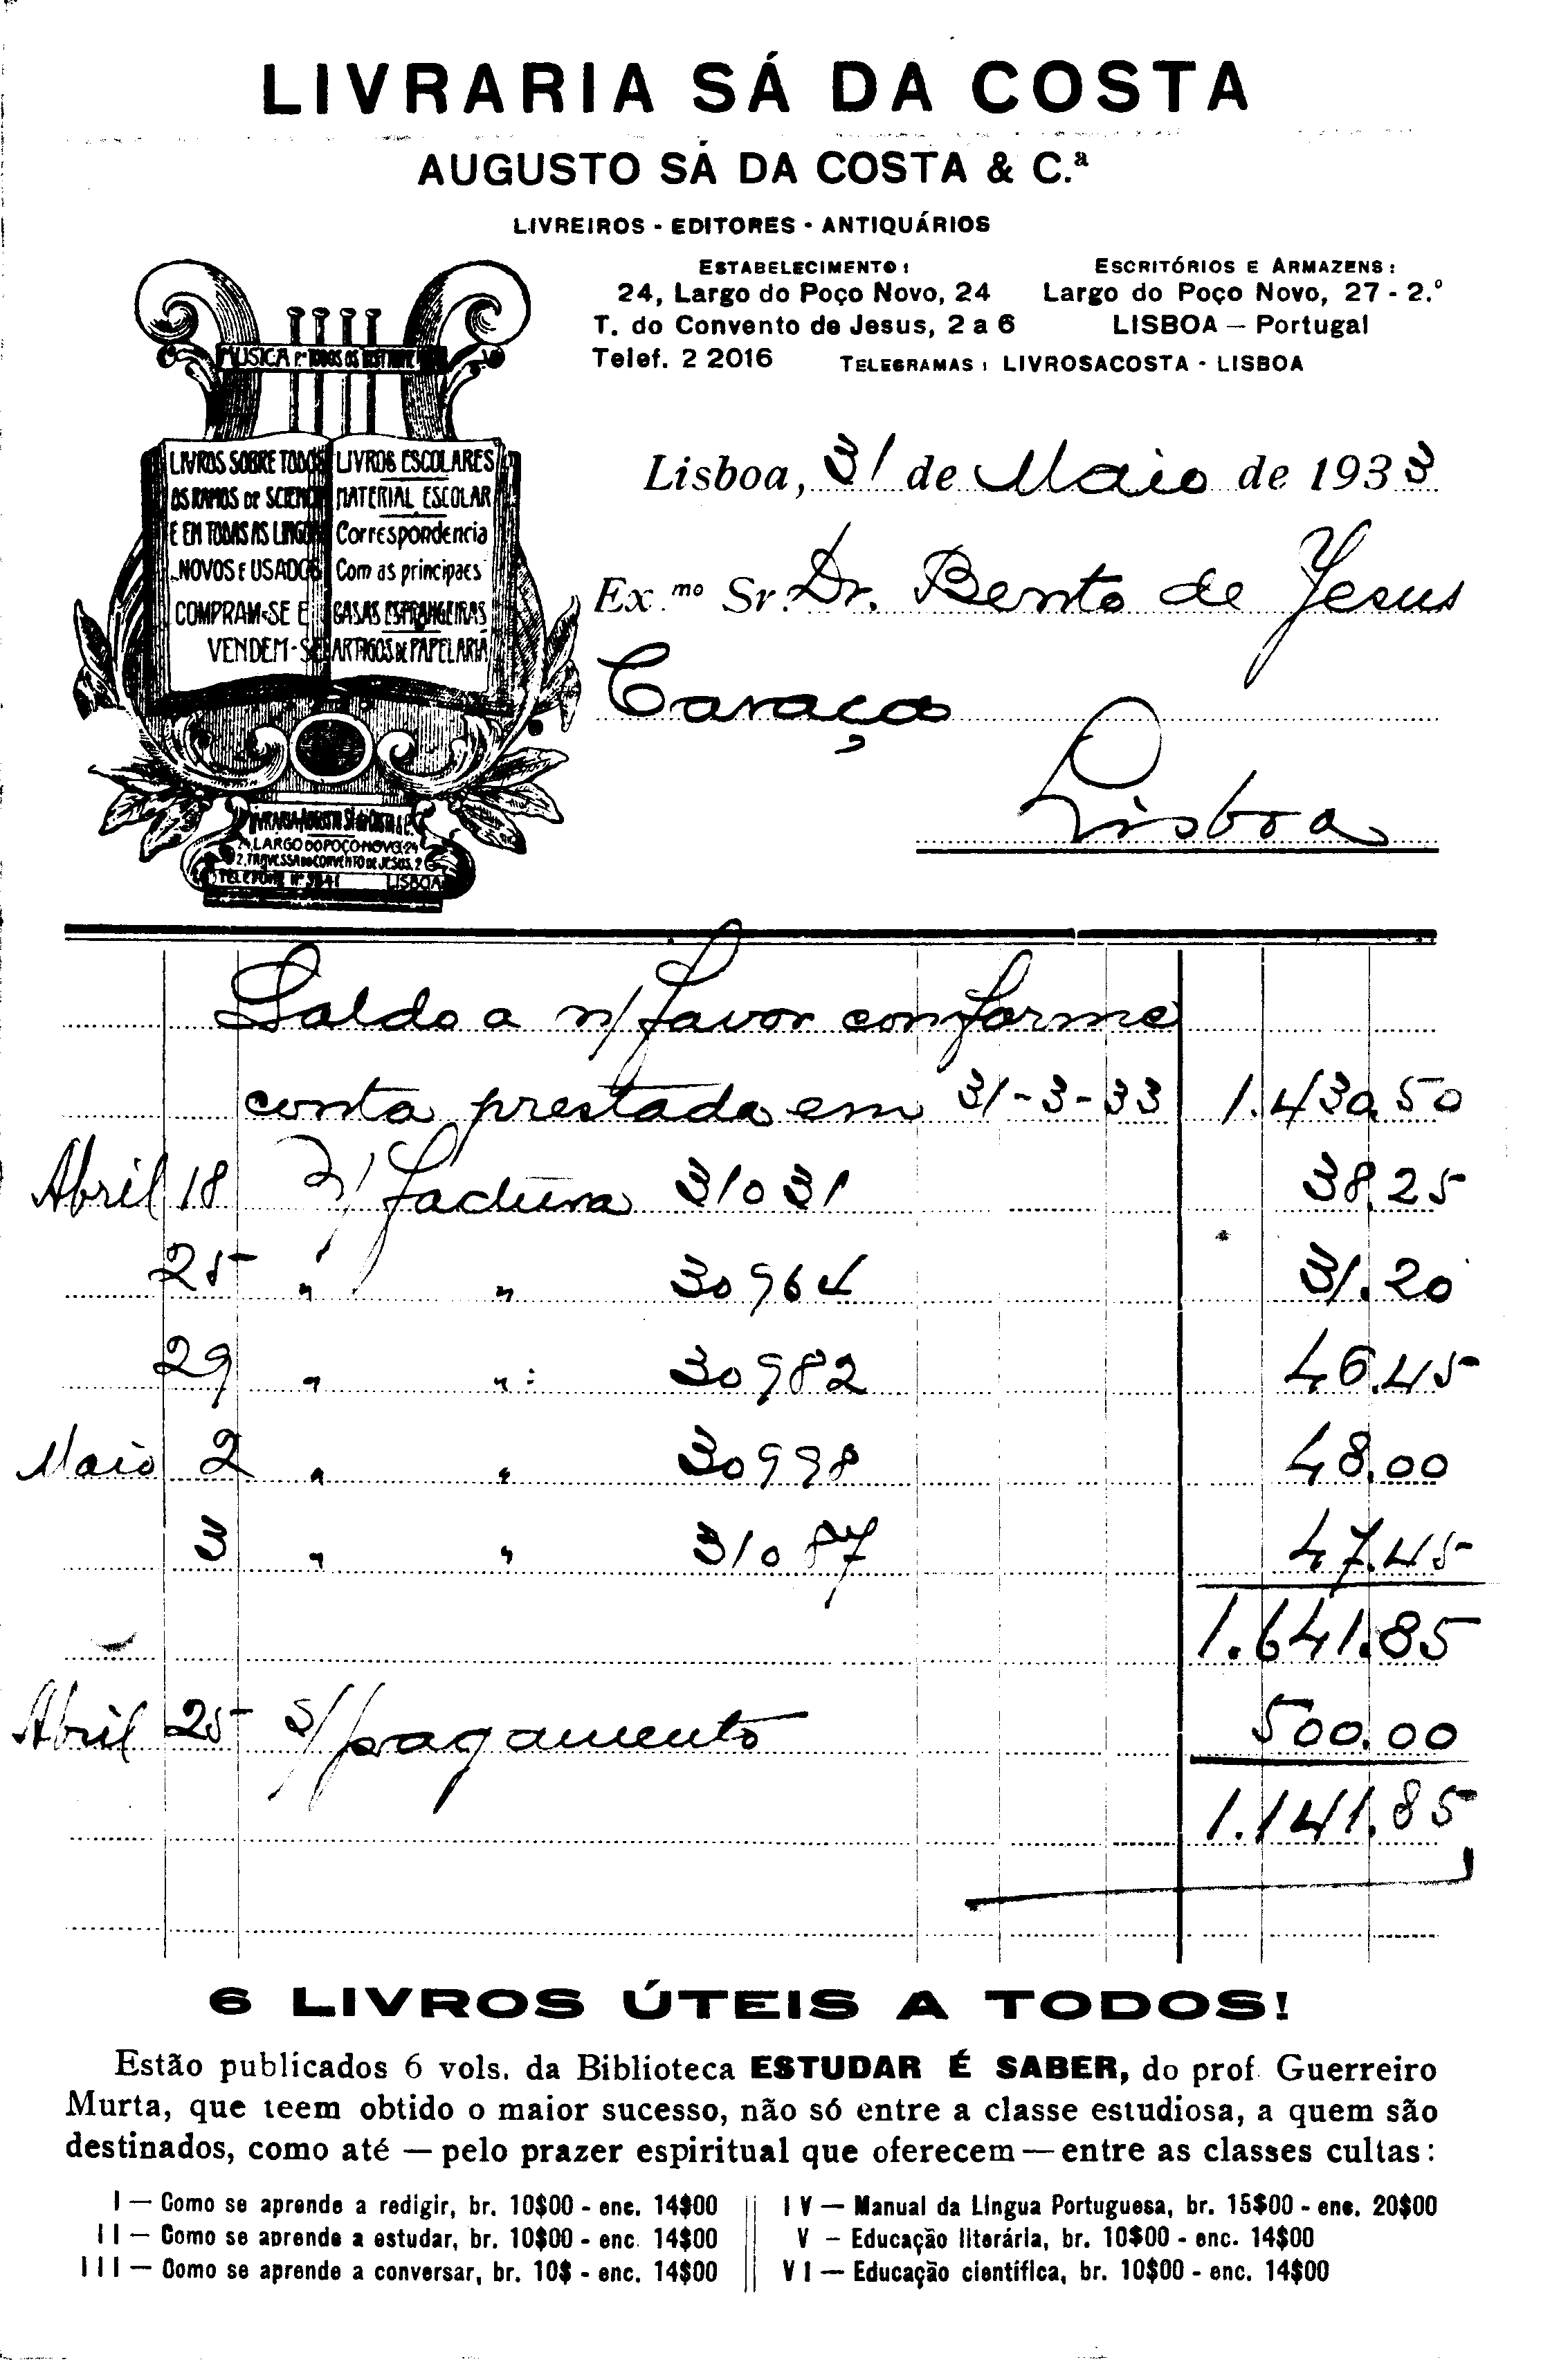 LIVRARIA SÁ DA COSTA
AUGUSTO SÁ DA COSTA & C.ª
LIVREIROS - EDITORES - ANTIQUÁRIOS
ESTABELECIMENTO:
24, Largo do Poço Novo, 24
T. do Convento de Jesus, 2 a 6
Telef. 2 2016
ESCRITÓRIOS E ARMAZENS:
Largo do Poço Novo, 27 - 2.º
LISBOA — Portugal
TELEGRAMAS: LIVROSACOSTA - LISBOA
MUSICA Pª TODOS OS
LIVROS SOBRE TODOS
OS RAMOS DE
E EM TODAS AS
NOVOS E USADOS
COMPRAM-SE E
VENDEM-SE
LIVROS ESCOLARES
MATERIAL ESCOLAR
Correspondencia
Com as principaes
CASAS ESTRANGEIRAS
ARTIGOS DE PAPELARIA
LARGO DO POÇO NOVO, 24
2, TRAVESSA DO CONVENTO DE JESUS, 2
LISBOA
Lisboa, 31 de Maio de 1933
Ex.mo Sr. Dr. Bento de Jesus
Caraça
Lisboa
Saldo a n/ favor conforme
conta prestada em 31-3-33 1.430.50
Abril 18 N/ factura 31031 38.25
25 " " 30964 31.20
29 " " 30982 46.45
Maio 2 " " 30998 48.00
3 " " 31087 47.45
1.641.85
Abril 25 s/ pagamento 500.00
1.141.85
6 LIVROS ÚTEIS A TODOS!
Estão publicados 6 vols. da Biblioteca ESTUDAR É SABER, do prof. Guerreiro
Murta, que teem obtido o maior sucesso, não só entre a classe estudiosa, a quem são
destinados, como até — pelo prazer espiritual que oferecem — entre as classes cultas:
I — Como se aprende a redigir, br. 10$00 - enc. 14$00
II — Como se aprende a estudar, br. 10$00 - enc. 14$00
III — Como se aprende a conversar, br. 10$ - enc. 14$00
IV — Manual da Lingua Portuguesa, br. 15$00 - enc. 20$00
V - Educação literária, br. 10$00 - enc. 14$00
VI — Educação científica, br. 10$00 - enc. 14$00